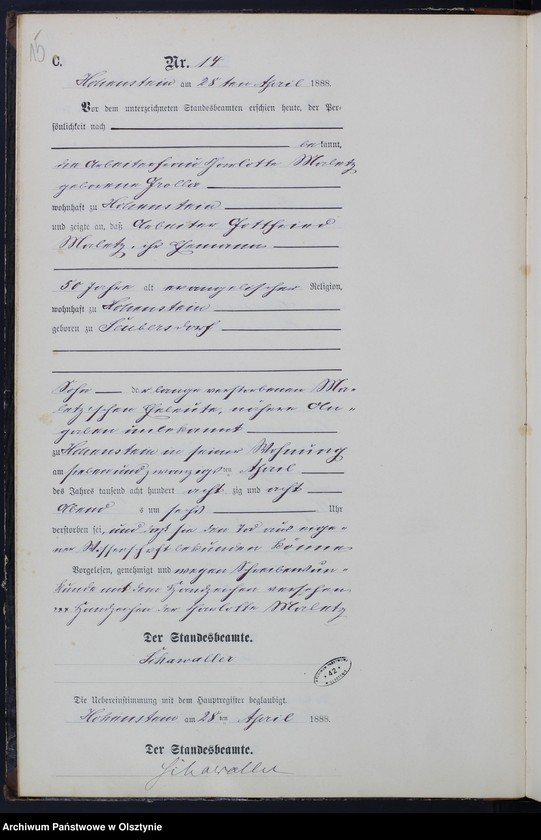 C.
Nr. 14
Hohenstein am 28 ten April 1888.
Vor dem unterzeichneten Standesbeamten erschien heute, der Per-
sönlichkeit nach
bekannt,
die Arbeiterfrau Charlotte Maletz
geborene
wohnhaft zu Hohenstein
und zeigte an, daß Arbeiter Gottfried
Maletz, ihr Ehemann
50 Jahre alt evangelischer Religion,
wohnhaft zu Hohenstein
geboren zu Seubersdorf
Sohn der lange verstorbenen Ma-
letz'schen Eheleute, nähere An-
gaben unbekannt
zu Hohenstein in seiner Wohnung
am sieben und zwanzigsten April
des Jahres tausend acht hundert acht zig und acht
Abends um sechs Uhr
verstorben sei, und daß sie den Tod aus eige-
ner Wissenschaft bekunden könne
Vorgelesen, genehmigt und wegen Schreibensun-
kunde mit dem Handzeichen versehen.
xxx Handzeichen der Charlotte Maletz
Der Standesbeamte.
Schawaller
42
Die Uebereinstimmung mit dem Hauptregister beglaubigt.
Hohenstein am 28 ten April 1888.
Der Standesbeamte.
Schawaller
Archiwum Państwowe w Olsztynie